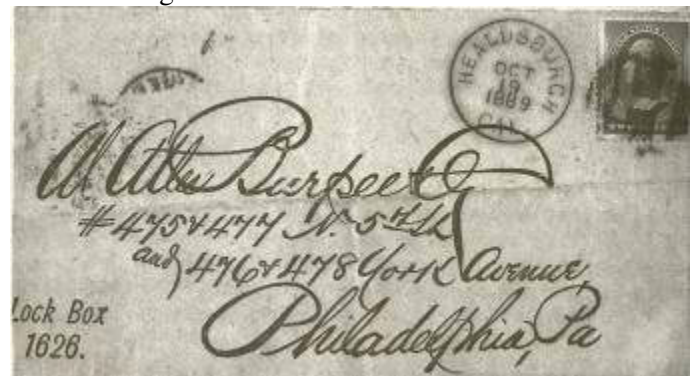 HEALDSBURGH
OCT
19
1889
CAL
W Atlee Burpee & Co
#475 & 477 N. 5th St
and 476 & 478 York Avenue,
Philadelphia, Pa
Lock Box
1626.